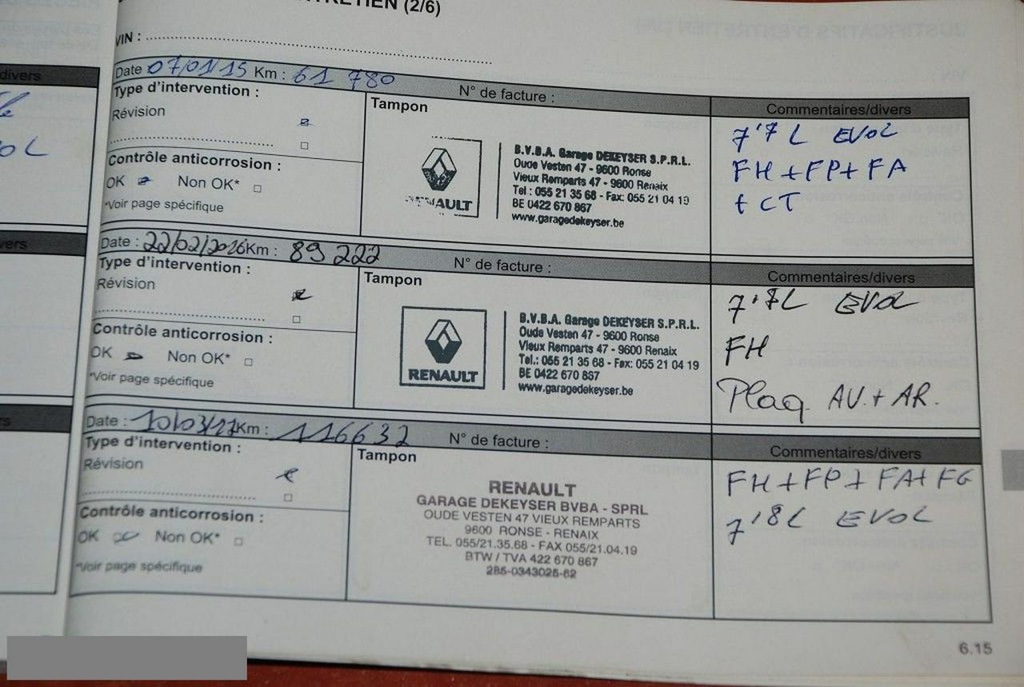 ENTRETIEN (2/6)
VIN :
Date 07/01/15 Km : 61 780
N° de facture :
Type d'intervention :
Révision
Contrôle anticorrosion :
OK Non OK*
*Voir page spécifique
Tampon
RENAULT
B.V.B.A. Garage DEKEYSER S.P.R.L.
Oude Vesten 47 - 9600 Ronse
Vieux Remparts 47 - 9600 Renaix
Tel : 055 21 35 68 - Fax: 055 21 04 19
BE 0422 670 867
www.garagedekeyser.be
Commentaires/divers
7'7L EVOL
FH + FP + FA
+ CT
Date : 22/02/2016 Km : 89 222
N° de facture :
Type d'intervention :
Révision
Contrôle anticorrosion :
OK Non OK*
*Voir page spécifique
Tampon
RENAULT
B.V.B.A. Garage DEKEYSER S.P.R.L.
Oude Vesten 47 - 9600 Ronse
Vieux Remparts 47 - 9600 Renaix
Tel.: 055 21 35 68 - Fax: 055 21 04 19
BE 0422 670 867
www.garagedekeyser.be
Commentaires/divers
7'7L EVOL
FH
Plaq. AV. + AR.
Date : 10/03/17 Km : 116632
N° de facture :
Type d'intervention :
Révision
Contrôle anticorrosion :
OK Non OK*
*Voir page spécifique
Tampon
RENAULT
GARAGE DEKEYSER BVBA - SPRL
OUDE VESTEN 47 VIEUX REMPARTS
9600 RONSE - RENAIX
TEL. 055/21.35.68 - FAX 055/21.04.19
BTW / TVA 422 670 867
285-0343025-62
Commentaires/divers
FH + FP + FA + FG
7'8L EVOL
6.15